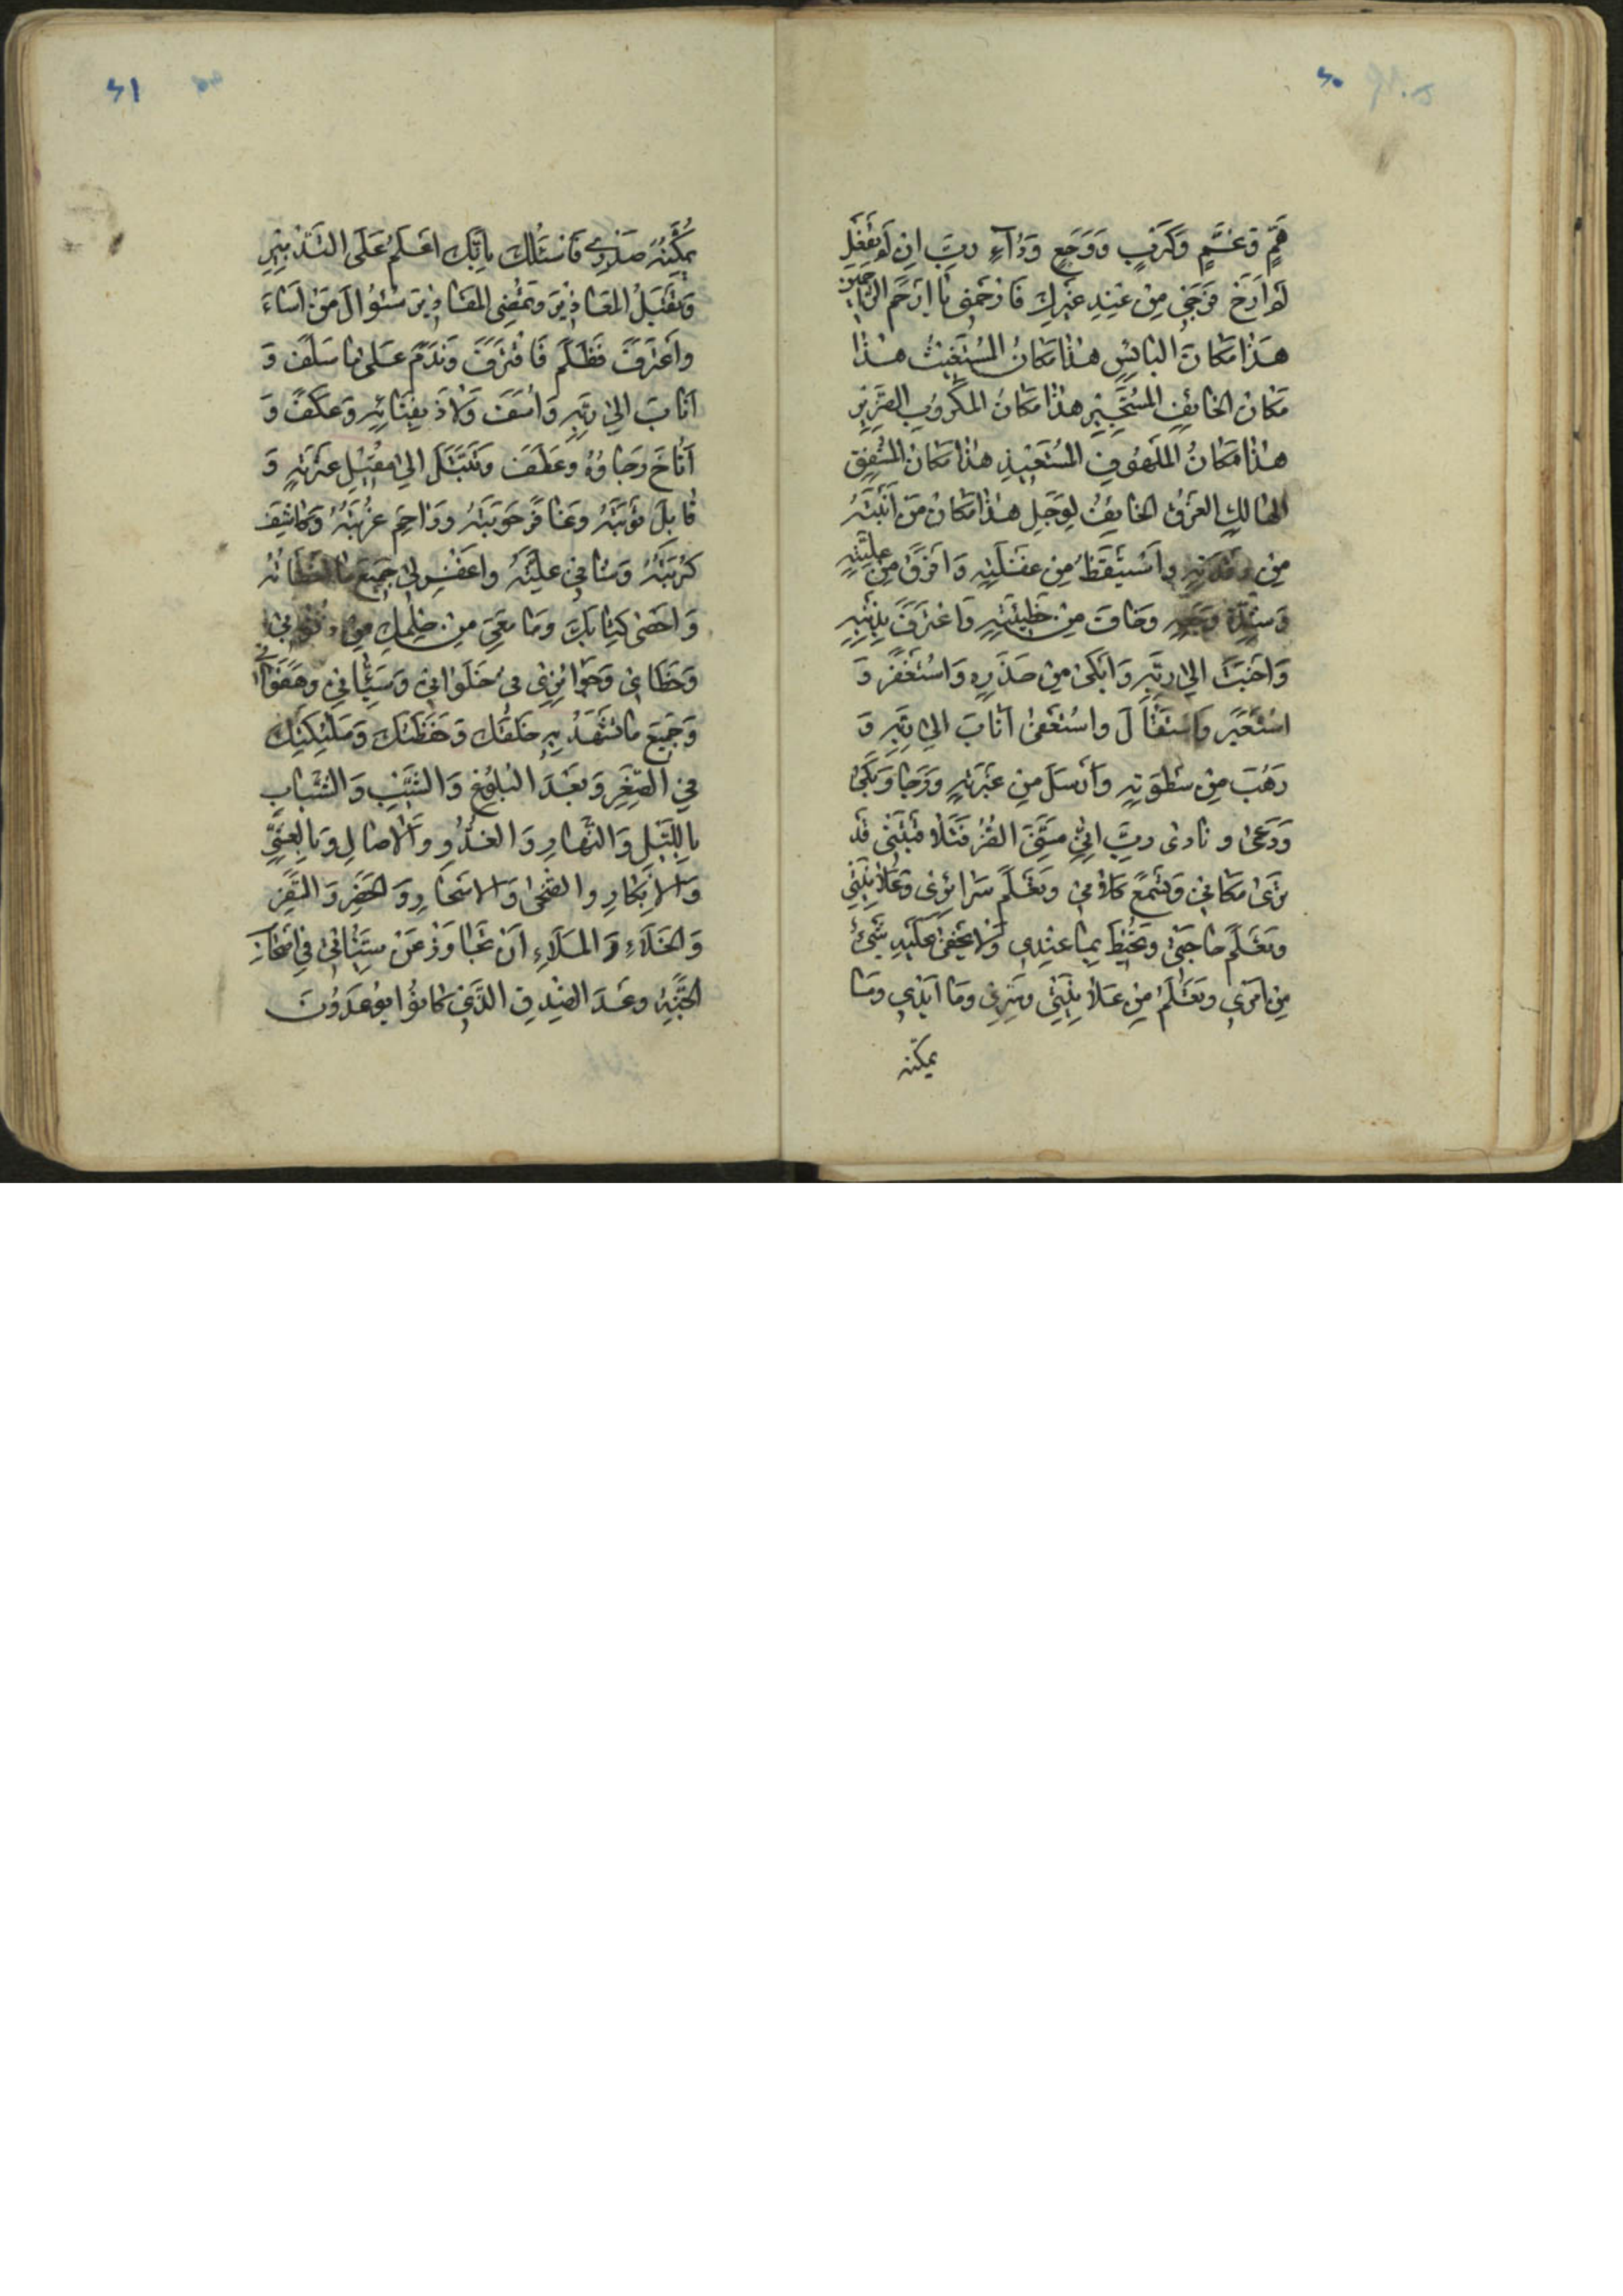 هَمٍّ وَغَمٍّ وَكَرْبٍ وَوَجَعٍ وَدٰآءٍ رَبِّ اِنْ لَمْ تَفْعَل
لَمْ اَرْجُ فَرَجي مِنْ عِنْدِ غَيْرِكَ فَارْحَمْنى يٰا اَرْحَمَ الرّٰاحِمينَ
هَذٰا مَكٰانَ البٰائِسِ هٰذٰا مَكٰانُ المُسْتَغيثِ هٰذٰا
مَكٰانُ الخٰائِفِ المُسْتَجيرِ هٰذٰا مَكٰانُ المَكْرُوبِ الضَّريرِ
هٰذٰا مَكٰانُ المَلْهُوفِ المُسْتَعيذِ هٰذٰا مَكٰانُ المُشْفِقِ
الهٰالِكِ الغَرِقُ الخٰائِفُ الوَجِلِ هٰذٰا مَكٰانُ مَنْ اَنْبَتَهُ
مِنْ رَقْدَتِهِ وَاَسْتَيْقَظَ مِنْ غَفْلَتِهِ وَ اَفْرَقَ مِنْ عِلَّتِهِ
وَشِدَّةِ وَجَعِهِ وَخٰافَ مِنْ خَطيئَتِهِ وَاعْتَرَفَ بِذَنْبِهِ
وَاَخْبَتَ اِلىٰ رَبِّهِ وَابَكىٰ مِنْ حَذَرِهِ وَاسْتَغْفَرَ وَ
اسْتَعْبَرَ وَاسْتَقٰالَ واسْتَعْفىٰ اَنٰابَ اِلىٰ رَبِّهِ وَ
رَهْبَ مِنْ سَطْوَتِهِ وَاَرْسَلَ مِنْ عَبْرَتِهِ وَرَجٰا وَبَكىٰ
وَدَعىٰ و نٰادىٰ رَبِّ اِنّى مَسَّنِىَ الضُّرُّ فَتَلاٰفَيْنى قَدْ
تَرىٰ مَكٰانى وَتَسْمَعُ كَلاٰمى وَتَعْلَمُ سَرٰائِرى وَعَلاٰنِيَتى
وَتَعْلَمُ حٰاجَتى وَتُحيطُ بِمٰا عِنْدِى وَلاٰ يَخْفىٰ عَلَيْكَ شَىْءٌ
مِنْ اَمْرى وَتَعْلَمُ مِنْ عَلاٰنِيَتى وَسِرّى وَمٰا اُبْدى وَمٰا
يمكنه
يُكِنُّهُ صَدْرى فَاَسْئَلُكَ بِاَنَّكَ اَعْلَمُ عَلَى التَّدْبيرِ
وَتَقْبَلُ المَعٰاذيرَ وَتُمْضِى المَقٰاديرَ سُئوٰالَ مَنْ اَسٰاءَ
وَاَعْتَرَفَ فَظَلَمَ فَاقْتَرَفَ وَنَدَمَ عَلىٰ مٰا سَلَفَ وَ
اَنٰابَ اِلىٰ رَبِّهِ وَاَسَفَ وَلاٰذَ بِفِنٰائِهِ وَعَكَفَ وَ
اَنٰاخَ رَجٰاؤُهُ وَعَطَفَ وَتَبَتَّلَ اِلىٰ مُقيلِ عَثْرَتِهِ وَ
قٰابِلَ تَوْبَتَهُ وَغٰافَرَ حَوْبَتَهُ وَرٰاحِمِ غُرْبَتَهُ وَكٰاشِفِ
كُرْبَتَهُ وَشٰافى عِلَّتَهُ وَاغْفِرْ لى جَميعَ مٰا
وَاَحْصىٰ كِتٰابَكَ وَمٰا مَعىَ مِنْ
وَخَطٰائى وَجَوٰائِرى فى خَلَوٰاتى وَسَيِّئٰاتى وَهَفَوٰاتى
وَجَميعَ مٰا تَشْهَدُ بِهِ خَلْقُكَ وَحَفَظَتُكَ وَمَلٰئِكَتِكَ
فىِ الصِّغَرِ وَبَعْدَ البُلُوغِ وَالشَّيْبِ وَالشَّبٰابِ
بِاللَّيْلِ وَالنَّهٰارِ وَالغُدُوِّ وَالاٰصٰالِ وَبِالعَشِىِّ
وَالاِبْكٰارِ وَالضُّحىٰ وَالاَسْحٰارِ وَالحَضَرِ وَالسَّفَرِ
وَالخَلاَءِ وَالمَلاَءِ اَنْ تَجٰاوَزَ عَنْ سَيِّئٰاتى فى اَصْحٰابِ
الجَنَّةِ وَعَدَ الصِّدْقِ الَّذى كٰانُوا يُوعَدُونَ